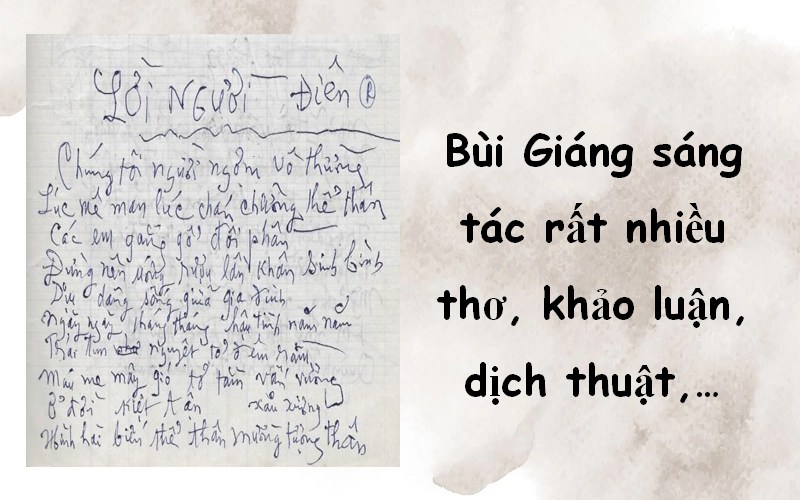 LỜI NGƯỜI ĐIÊN
Chúng tôi người ngợm vô thường
Lúc mê man lúc chán chường thể thân
Các em gắng gổ đôi phần
Đừng nên uống rượu lần khân bình
Dịu dàng sống giữa gia đình
Ngày ngày tháng tháng hậu tình năm năm
Trái tim nguyệt tỏ đêm rằm
May mẹ mây gió tơ tằm vấn vương
Ở đời kiệt tận xấu xương
Hình hài biến thể thân mường tượng thân
Bùi Giáng sáng
tác rất nhiều
thơ, khảo luận,
dịch thuật,…